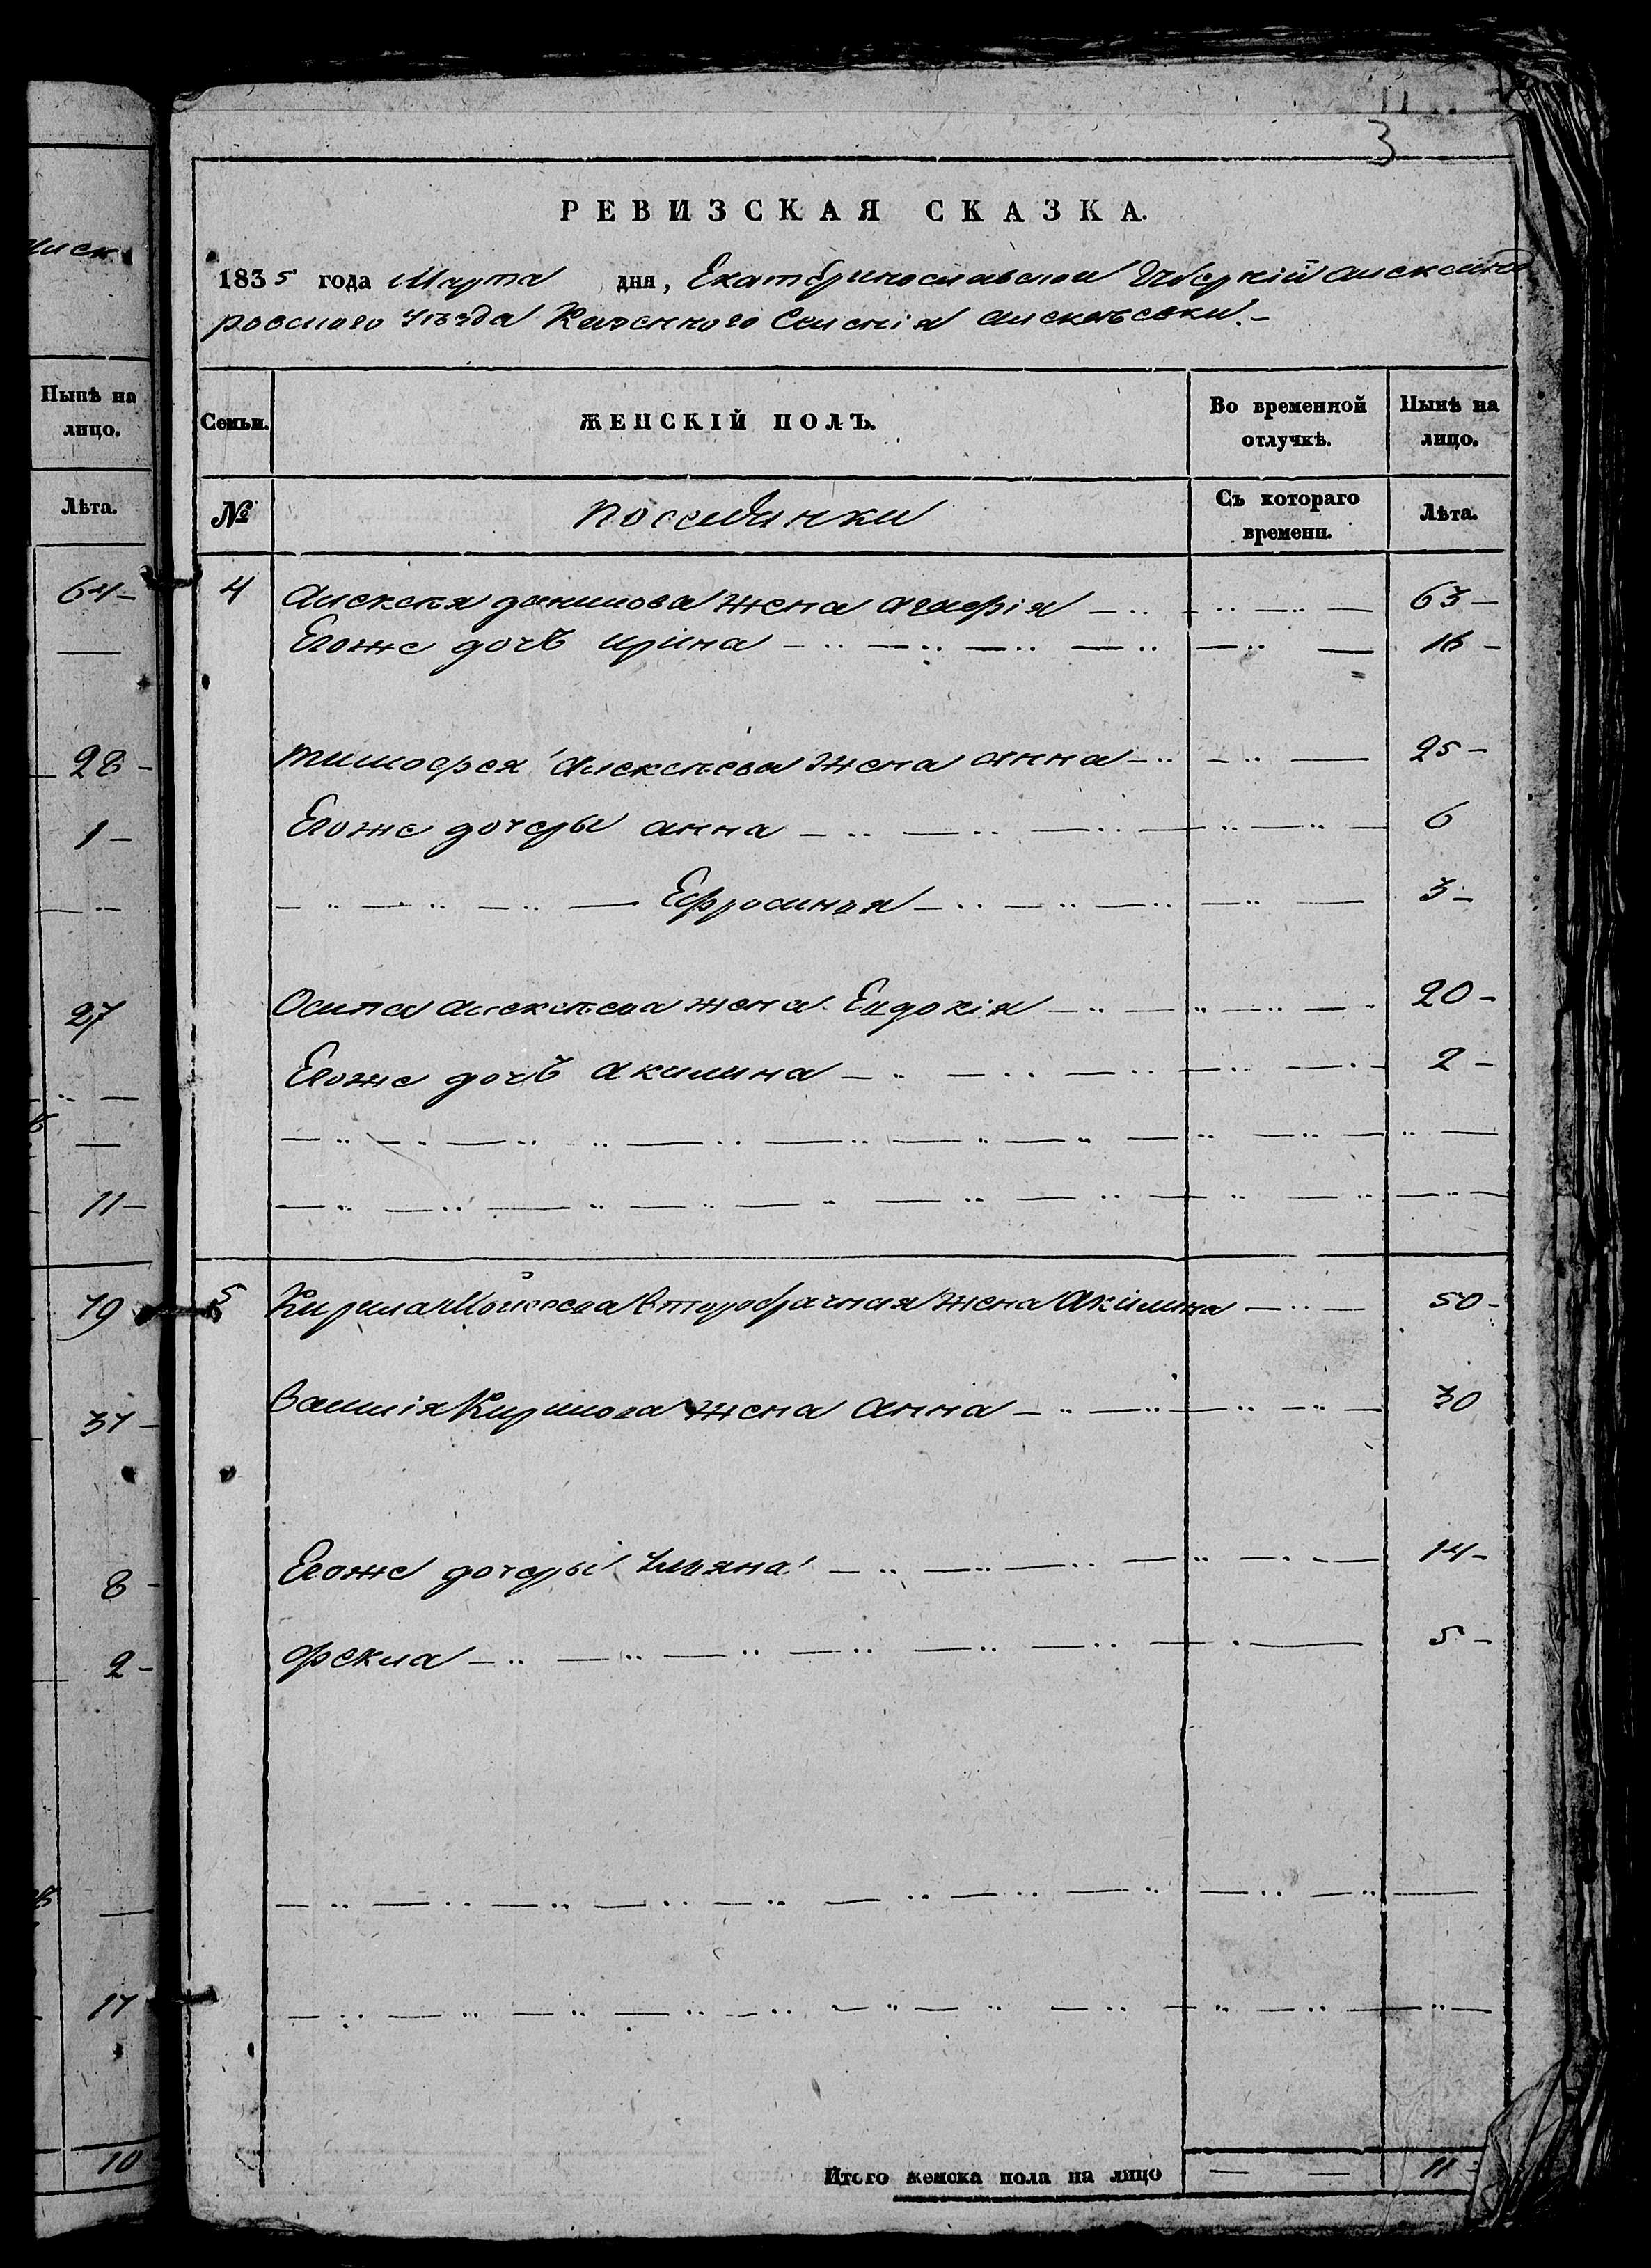 3
РЕВИЗСКАЯ СКАЗКА.
1835 года Марта дня, Екатеринославской Губернїи Александ
ровского уѣзда Казенного Селенїя Алексѣевки.
иск
Нынѣ на лицо.
Лѣта.
64
28
1
27
11
19
37
8
2
17
10
Семьи.
ЖЕНСКІЙ ПОЛЪ.
Во временной отлучкѣ.
Нынѣ на лицо.
№
Съ котораго времени.
Лѣта.
4 Алексѣя данилова жена агафїя 63
Егоже дочь ирина 16
тимофея Алексѣева жена анна 25
Егоже дочеры анна 6
Ефросинья 3
Осипа алексѣева жена Евдокїя 20
Егоже дочь акилина 2
5 Кирила Мойсеева второбрачная жена Акилина 50
Василїя Кирилова жена анна 30
Егоже дочеры ульяна 14
фекла 5
Итого женска пола на лицо 11